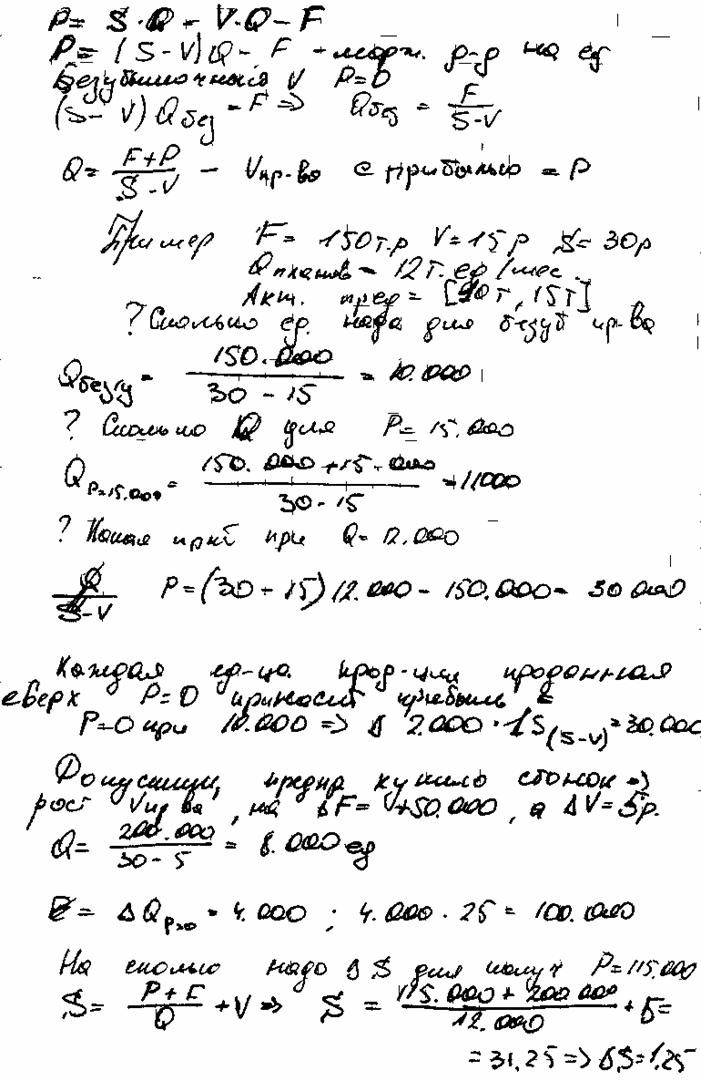 P = S·Q - V·Q - F
P = (S-V)Q - F - марж. р-р на ед
Безубыточный V P=0
(S-V)Q без = F => Q без = F/(S-V)
Q = (F+P)/(S-V) - V пр-ва с прибылью = P
Пример F = 150т.р V = 15р S = 30р
Q планов = 12т.ед/мес.
пред = [ , 15т]
? Сколько ед. надо для безуб пр-ва
Q безу = 150.000/(30-15) = 10.000
? Сколько Q для P = 15.000
Q P=15.000 = (150.000+15.000)/(30-15) = 11000
? Какая при Q = 12.000
Q/(S-V) P = (30-15)12.000 - 150.000 = 30 000
Каждая ед-ца прод-ции проданная
сверх P=0 приносит прибыль =
P=0 при 10.000 => Δ 2.000·15(S-V) = 30.000
Допустим, предпр купило станок =>
рост V пр ва, на ΔF = +50.000, а ΔV = 5р.
Q = 200.000/(30-5) = 8.000 ед
= ΔQ p=0 = 4.000 ; 4.000·25 = 100.000
На сколько надо Δ S для получ P=115.000
S = (P+F)/Q + V => S = (115.000+200 000)/12.000 + 5 =
= 31,25 => ΔS = 1,25